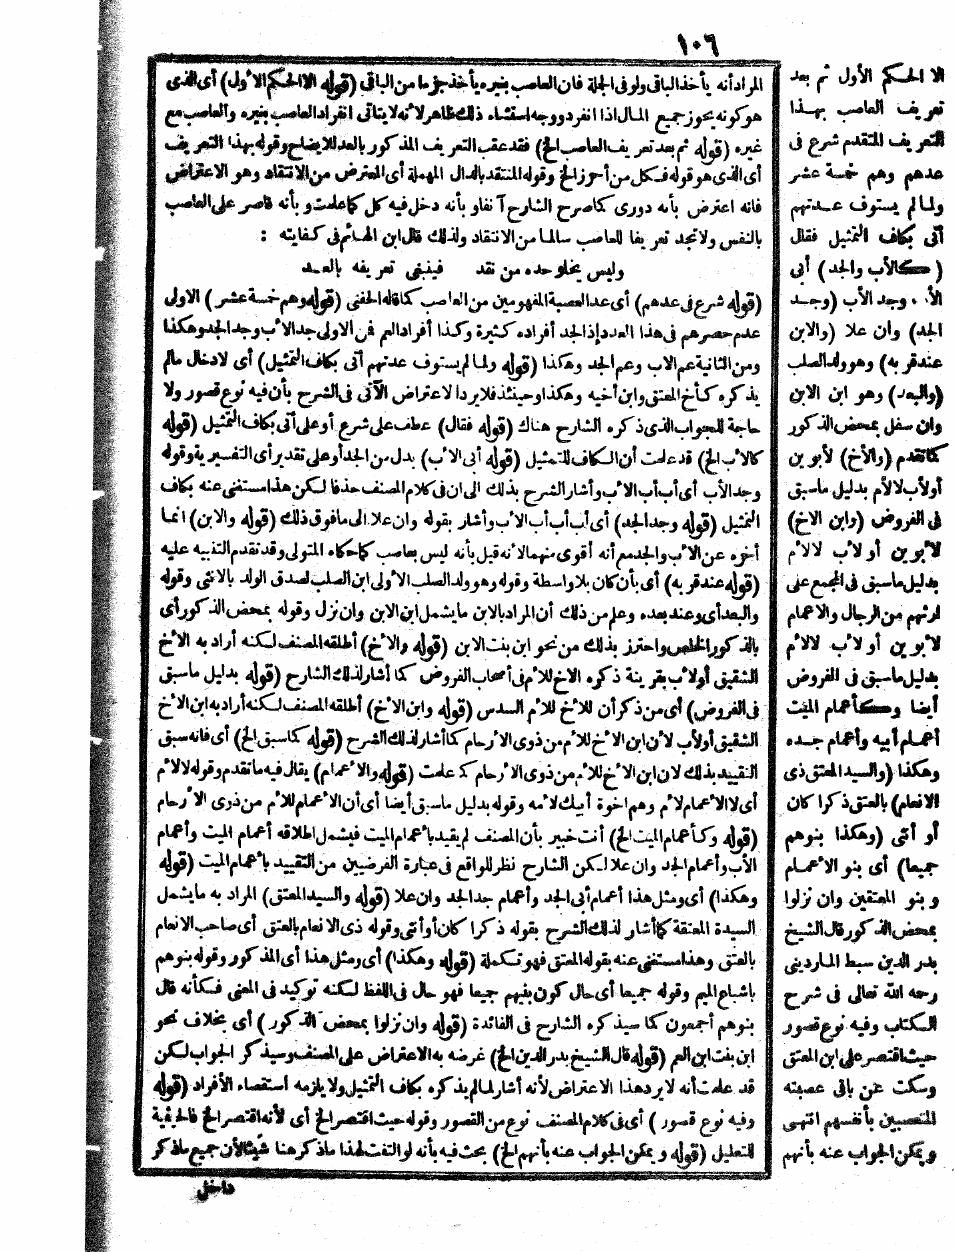 ١٠٦
المرادأنه يأخذ الباقى ولو فى الجملة فان العاصب بغيره يأخذ جزأ مما من الباقى (قوله الا الحكم الأول) أى الذى
هو كونه يحوز جميع المال اذا انفرد ووجه استثناء ذلك ظاهر لأنه لا يتأتى انفراد العاصب بغيره والعاصب مع
غيره (قوله ثم بعد تعريف العاصب الخ) فقد عقب التعريف المذكور بالعد للايضاح وقوله بهذا التعريف
أى الذى هو قوله فكل من أحرز الخ وقوله المنتقد بالدال المهملة أى المعترض من الانتقاد وهو الاعتراض
فانه اعترض بأنه دورى كما صرح الشارح آنفا و بأنه دخل فيه كل كما علمت و بأنه قاصر على العاصب
بالنفس ولا تجد تعريفا للعاصب سالما من الانتقاد ولذلك قال ابن الهائم فى كفايته :
وليس يخلو حده من نقد فينبغى تعريفه بالعد
(قوله شرع فى عدهم) أى عد العصبة المفهومين من العاصب كما قاله الحفنى (قوله وهم خمسة عشر) الاولى
عدم حصرهم فى هذا العدد إذ الجد أفراده كثيرة وكذا أفراد العم فمن الاولى جد الأب وجد الجد وهكذا
ومن الثانية عم الاب وعم الجد وهكذا (قوله ولما لم يستوف عدتهم أتى بكاف التمثيل) أى لادخال مالم
يذكره كأخ المعتق وابن أخيه وهكذا وحينئذ فلا يرد الاعتراض الآتى فى الشرح بأن فيه نوع قصور ولا
حاجة للجواب الذى ذكره الشارح هناك (قوله فقال) عطف على شرع أو على أتى بكاف التمثيل (قوله
كالأب الخ) قد علمت أن الكاف للتمثيل (قوله أبى الأب) بدل من الجد أو على تقدير أى التفسيرية وقوله
وجد الأب أى أب أب الأب وأشار الشرح بذلك الى ان فى كلام المصنف حذفا لكن هذا مستغنى عنه بكاف
التمثيل (قوله وجد الجد) أى أب أب أب الأب وأشار بقوله وان علا الى ما فوق ذلك (قوله والابن) انما
أخره عن الأب والجد مع أنه أقوى منهما لأنه قيل بأنه ليس بعاصب كما حكاه المتولى وقد تقدم التنبيه عليه
(قوله عند قربه) أى بأن كان بلا واسطة وقوله وهو ولد الصلب الأولى ابن الصلب لصدق الولد بالانثى وقوله
والبعد أى وعند بعده وعلم من ذلك أن المراد بالابن ما يشمل ابن الابن وان نزل وقوله بمحض الذكور أى
بالذكور الخلص واحترز بذلك من نحو ابن بنت الابن (قوله والاخ) أطلقه المصنف لكنه أراد به الأخ
الشقيق أو لأب بقرينة ذكره الاخ للأم فى أصحاب الفروض كما أشار لذلك الشارح (قوله بدليل ماسبق
فى الفروض) أى من ذكر أن للأخ للأم السدس (قوله وابن الأخ) أطلقه المصنف لكنه أراد به ابن الأخ
الشقيق أو لأب لأن ابن الأخ للأم من ذوى الأرحام كما أشار لذلك الشرح (قوله كما سبق الخ) أى فانه سبق
التقييد بذلك لان ابن الأخ للأم من ذوى الأرحام كما علمت (قوله والاعمام) يقال فيه ما تقدم وقوله لا لأم
أى لا الأعمام لام وهم اخوة أبيك لأمه وقوله بدليل ماسبق أيضا أى أن الأعمام للأم من ذوى الأرحام
(قوله وكأعمام الميت الخ) أنت خبير بأن المصنف لم يقيد بأعمام الميت فيشمل اطلاقه أعمام الميت وأعمام
الأب وأعمام الجد وان علا لكن الشارح نظر للواقع فى عبارة الفرضيين من التقييد بأعمام الميت (قوله
وهكذا) أى ومثل هذا أعمام أبى الجد وأعمام جد الجد وان علا (قوله والسيد المعتق) المراد به ما يشمل
السيدة المعتقة كما أشار لذلك الشرح بقوله ذكرا كان أو أنثى وقوله ذى الانعام بالعتق أى صاحب الانعام
بالعتق وهذا مستغنى عنه بقوله المعتق فهو تكملة (قوله وهكذا) أى ومثل هذا أى المذكور وقوله بنوهم
باشباع الميم وقوله جميعا أى حال كون بنيهم جميعا فهو حال فى اللفظ لكنه توكيد فى المعنى فكأنه قال
بنوهم أجمعون كما سيذكره الشارح فى الفائدة (قوله وان نزلوا بمحض الذكور) أى بخلاف نحو
ابن بنت ابن العم (قوله قال الشيخ بدر الدين الخ) غرضه به الاعتراض على المصنف وسيذكر الجواب لكن
قد علمت أنه لا يرد هذا الاعتراض لأنه أشار لما لم يذكره بكاف التمثيل ولا يلزمه استقصاء الأفراد (قوله
وفيه نوع قصور) أى فى كلام المصنف نوع من القصور وقوله حيث اقتصر الخ أى لأنه اقتصر الخ فالحيثية
للتعليل (قوله ويمكن الجواب عنه بأنهم الخ) بحث فيه بأنه لو التفت لهذا ما ذكر هنا شيئا لأن جميع ماذكر
داخل
الا الحكم الأول ثم بعد
تعريف العاصب بهذا
التعريف المتقدم شرع فى
عدهم وهم خمسة عشر
ولما لم يستوف عدتهم
أتى بكاف التمثيل فقال
(كالأب والجد) أبى
الأب وجد الأب (وجد
الجد) وان علا (والابن
عند قربه) وهو ولد الصلب
(والبعد) وهو ابن الابن
وان سفل بمحض الذكور
كما تقدم (والأخ) لأبوين
أو لأب لا لأم بدليل ماسبق
فى الفروض (وابن الاخ)
لأبوين أو لأب لا لأم
بدليل ماسبق فى المجمع على
ارثهم من الرجال والاعمام
لأبوين أو لأب لا لأم
بدليل ماسبق فى الفروض
أيضا وكأعمام الميت
أعمام أبيه وأعمام جده
وهكذا (والسيد المعتق ذى
الانعام) بالعتق ذكرا كان
أو أنثى (وهكذا بنوهم
جميعا) أى بنو الأعمام
وبنو المعتقين وان نزلوا
بمحض الذكور قال الشيخ
بدر الدين سبط الماردينى
رحمه الله تعالى فى شرح
الكتاب وفيه نوع قصور
حيث اقتصر على ابن المعتق
وسكت عن باقى عصبته
المتعصبين بأنفسهم انتهى
ويمكن الجواب عنه بأنهم